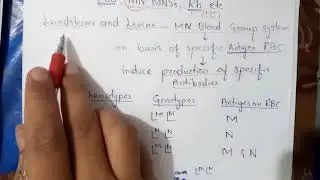 MN, MNSs, Rh etc
Landsteiner and Levine — MN Blood Group system
on basis of specific Antigen RBC
induce production of specific
Antibodies
Genotypes Antigen on RBC
Lᴹ Lᴹ M
Lᴺ Lᴺ N
Lᴹ Lᴺ M & N